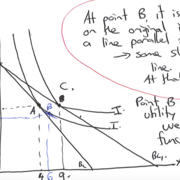 At point B, it is
on the original i
a line parallel
→ same sl
At tha
C.
A
B
B
I
I
Point B
utility
we
func
4
6
9
B